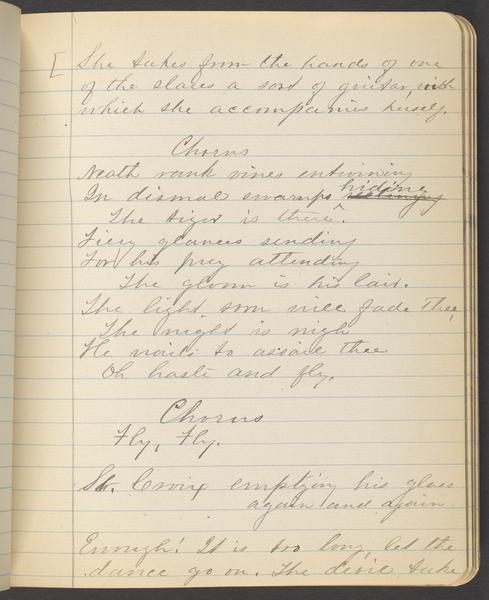 [ She takes from the hands of one
of the slaves a sort of guitar with
which she accompanies herself.
Chorus
Neath rank vines entwining
In dismal swamps hiding
The tiger is there.
Fiery glances sending
For his prey attending
The gloom is his lair.
The light soon will fade thee,
The night is nigh
He waits to assail thee
Oh haste and fly.
Chorus
Fly, Fly.
St. Croix emptying his glass
again and again.
Enough! It is too long, let the
dance go on. The devil take